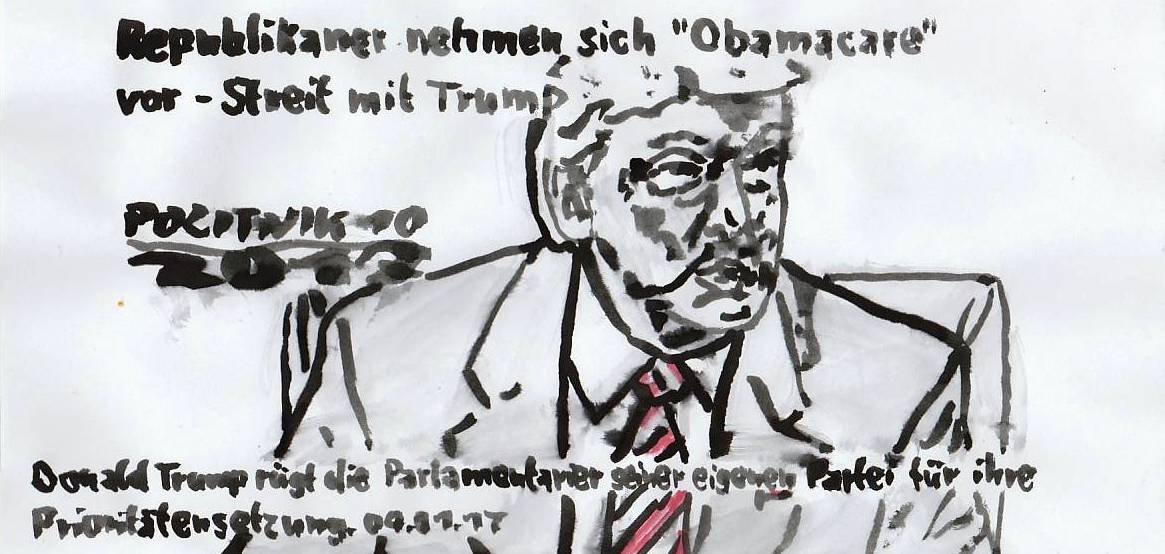 Republikaner nehmen sich "Obamacare"
vor - Streit mit Trump
Donald Trump rügt die Parlamentarier seiner eigenen Partei für ihre
Prioritätensetzung.